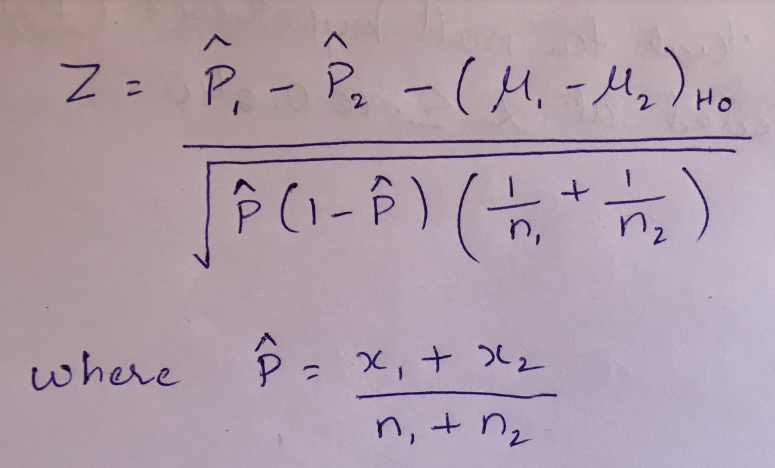 Z = p̂₁ - p̂₂ - (μ₁ - μ₂)H₀
√p̂(1-p̂)(1/n₁ + 1/n₂)
where p̂ = x₁ + x₂
n₁ + n₂